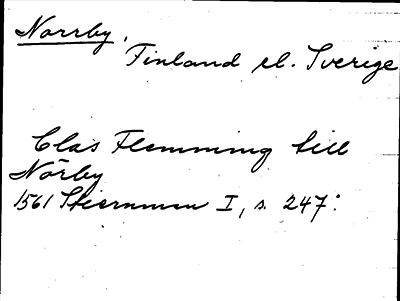 Norrby,
Finland el. Sverige
Clas Flemming till
Nörby
1561 Stiernman I, s. 247.